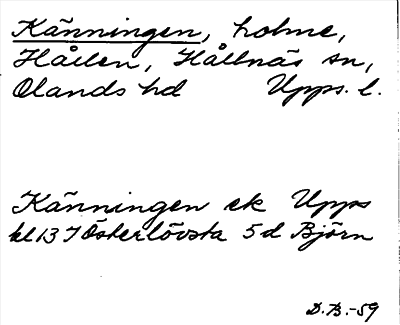 Känningen, holme,
Hållen, Hållnäs sn,
Olands hd Upps. l.
Känningen ek Upps
bl 13 I Österlövsta 5 d Björn
D.B.-59